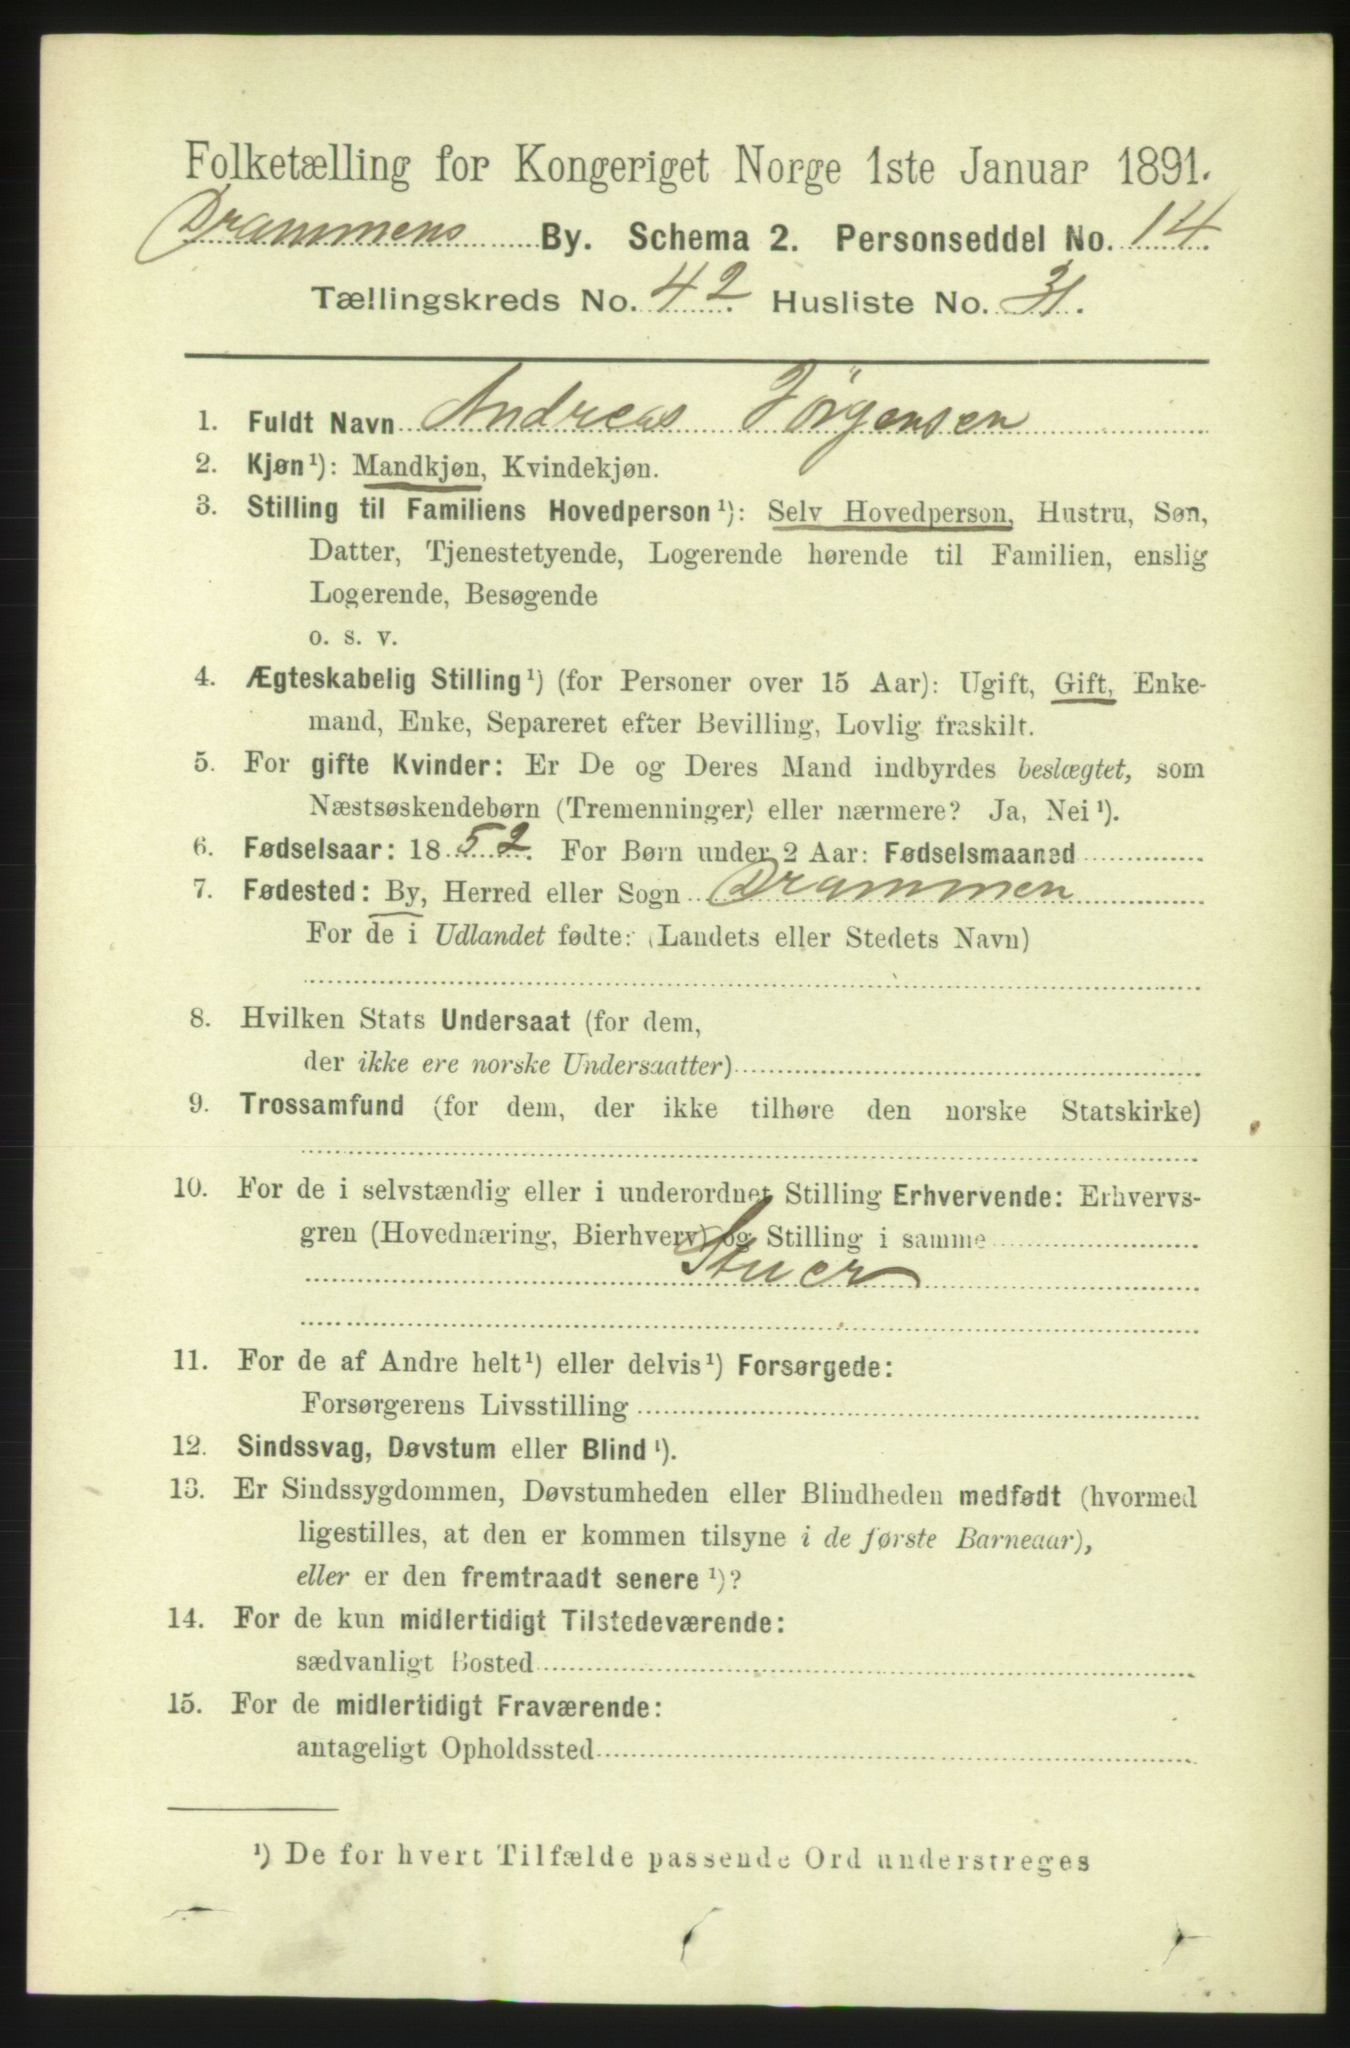 Folketælling for Kongeriget Norge 1ste Januar 1891.
Drammens By. Schema 2. Personseddel No. 14
Tællingskreds No. 42 Husliste No. 31.
1. Fuldt Navn Andreas Jörgensen
2. Kjøn¹): Mandkjøn, Kvindekjøn.
3. Stilling til Familiens Hovedperson¹): Selv Hovedperson, Hustru, Søn,
Datter, Tjenestetyende, Logerende hørende til Familien, enslig
Logerende, Besøgende
o. s. v.
4. Ægteskabelig Stilling¹) (for Personer over 15 Aar): Ugift, Gift, Enke-
mand, Enke, Separeret efter Bevilling, Lovlig fraskilt.
5. For gifte Kvinder: Er De og Deres Mand indbyrdes beslægtet, som
Næstsøskendebørn (Tremenninger) eller nærmere? Ja, Nei¹).
6. Fødselsaar: 1852. For Børn under 2 Aar: Fødselsmaaned
7. Fødested: By, Herred eller Sogn Drammen
For de i Udlandet fødte: (Landets eller Stedets Navn)
8. Hvilken Stats Undersaat (for dem,
der ikke ere norske Undersaatter)
9. Trossamfund (for dem, der ikke tilhøre den norske Statskirke)
10. For de i selvstændig eller i underordnet Stilling Erhvervende: Erhvervs-
gren (Hovednæring, Bierhverv) og Stilling i samme
Stuer
11. For de af Andre helt¹) eller delvis¹) Forsørgede:
Forsørgerens Livsstilling
12. Sindssvag, Døvstum eller Blind¹).
13. Er Sindssygdommen, Døvstumheden eller Blindheden medfødt (hvormed
ligestilles, at den er kommen tilsyne i de første Barneaar),
eller er den fremtraadt senere¹)?
14. For de kun midlertidigt Tilstedeværende:
sædvanligt Bosted
15. For de midlertidigt Fraværende:
antageligt Opholdssted
¹) De for hvert Tilfælde passende Ord understreges